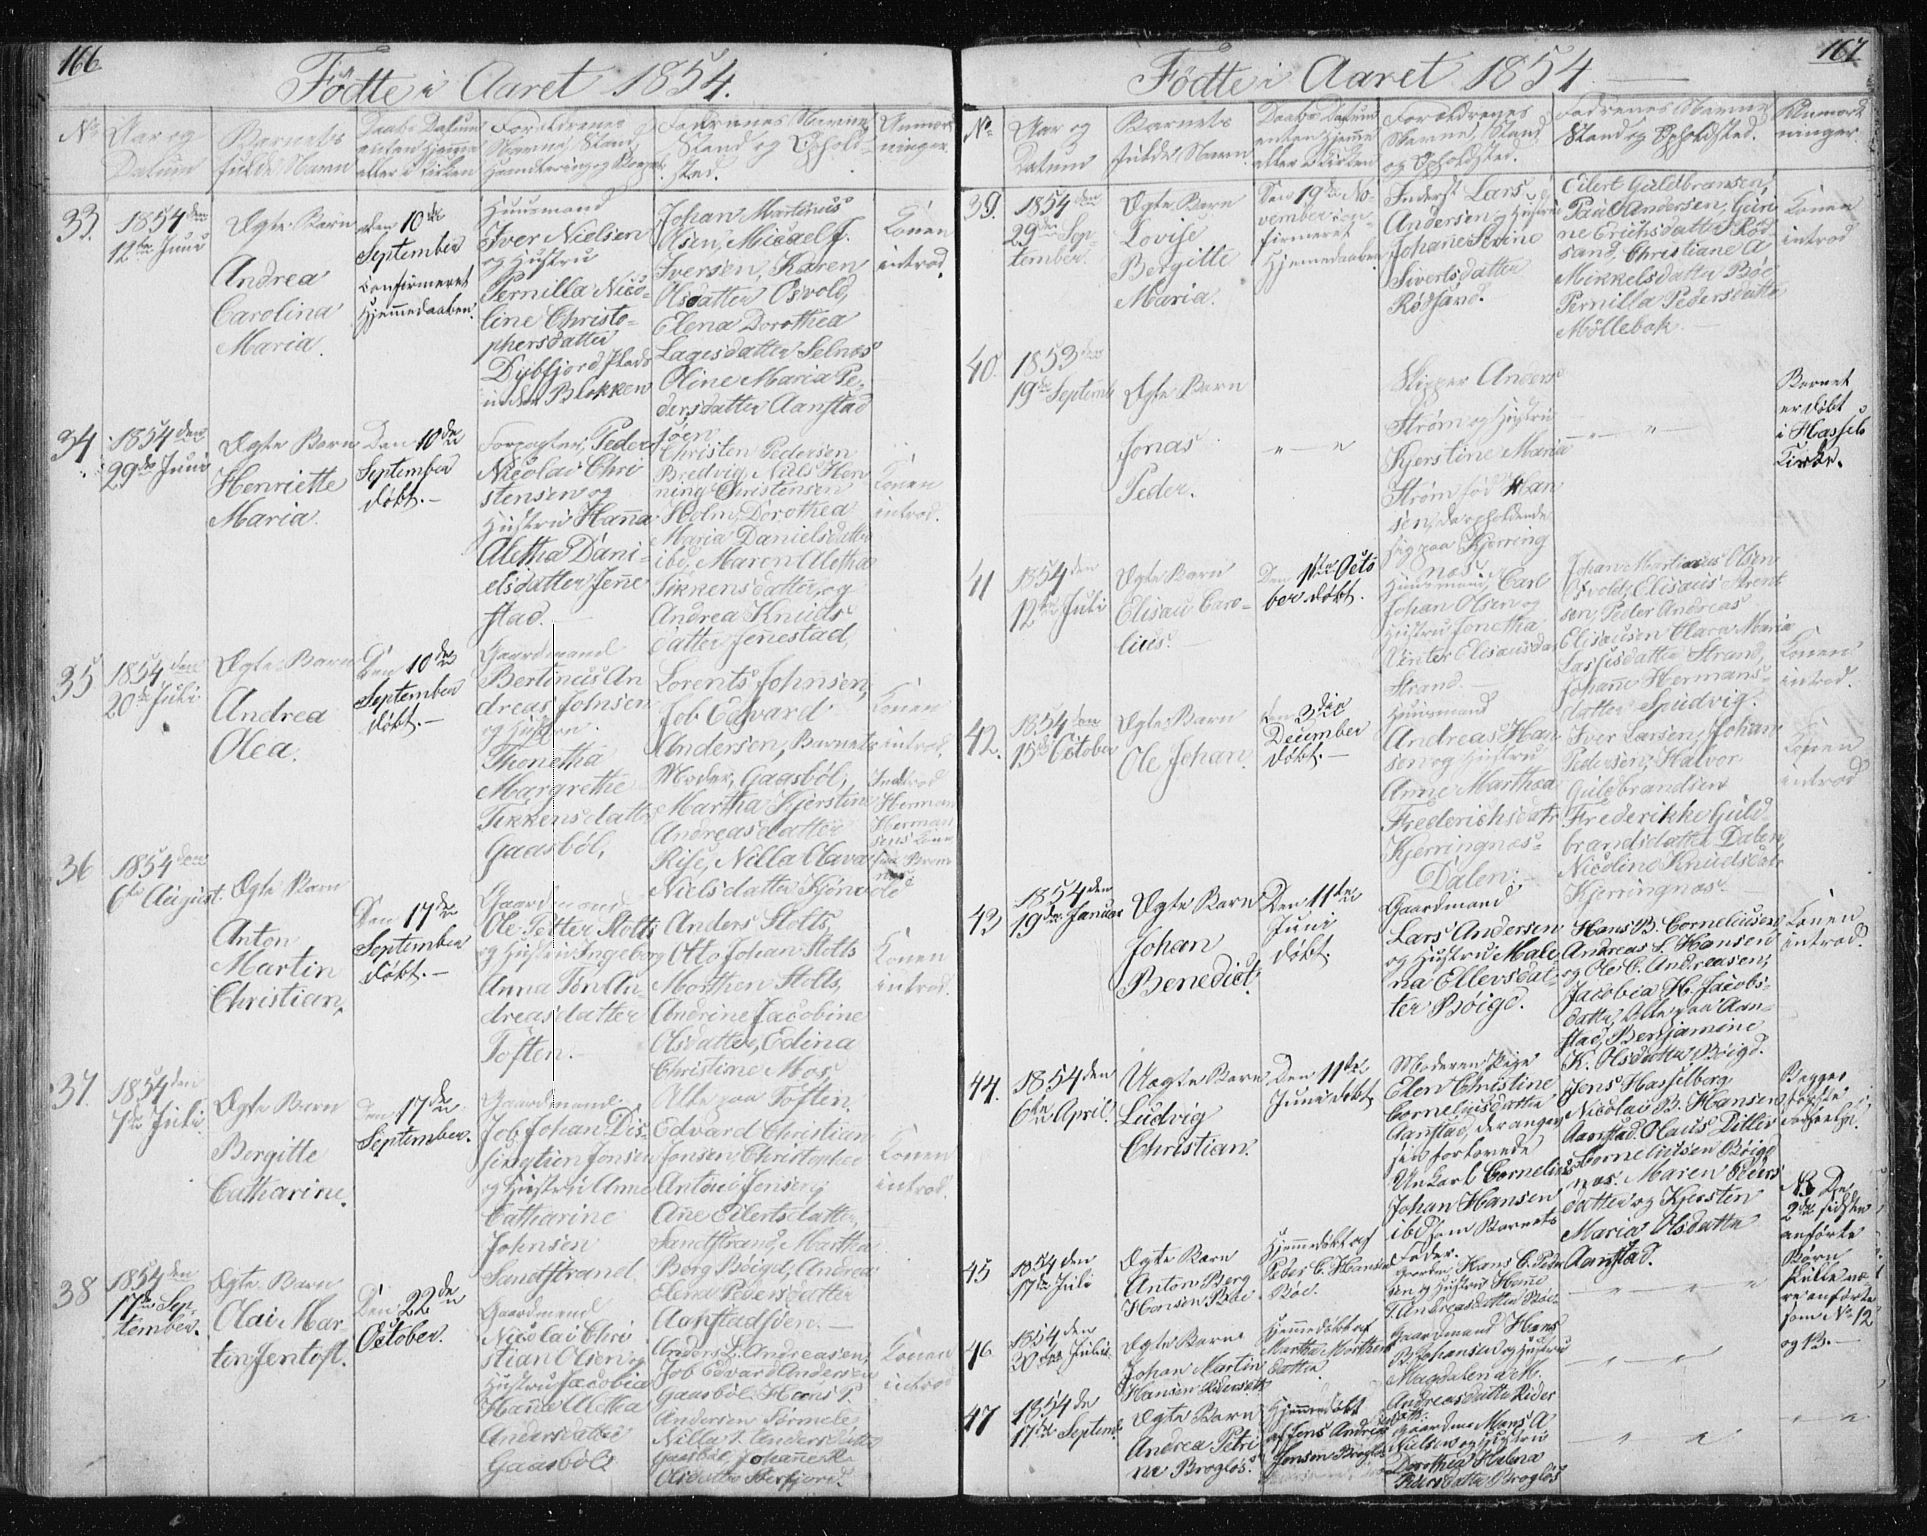 166
Födte i Aaret 1854.
No
Aar og
Datum
Barnets
fulde Navn
Daabs Datum
enten hjemme
eller i Kirken
Forældrenes
Navne, Stand
Faddernes Navne
Stand og Ophold-
sted.
Anmærk
ninger.
33.
1854 den
12te Juni
Ægte Barn
Andrea
Carolina
Maria.
den 10de
September
confirmeret
Hjemmedaaben.
Huusmand
Iver Nielsen
og Hustru
Pernilla Nico-
line Christo-
phersdatter
Dybfjord Plads
under Blokken
Johan Martinus
Olsen, Micael J.
Iversen, Karen
Olsdatter Osvold,
Elena Dorothea
Lagesdatter Selnæs
Oline Maria Pe-
dersdatter Aanstad
søen
Konen
introd.
34
1854 den
29de Juni
Ægte Barn
Henriette
Maria.
Den 10de
September
døbt.-
Forpagter Peder
Nicolai Chri
stensen og
Hustru Hanna
Aletha Dani-
elsdatter Jenne
stad.
Christen Pedersen
Bredvig, Niels Hen
ning Christensen
Holm, Dorothea
Maria Danielsdatter
ibd, Maren Aletha
Tikkensdatter og
Andrea Knuds
datter Jennestad,
Konen
introd.
35
1854 den
20de Juli
Ægte Barn
Andrea
Olea.
Den 10de
September
døbt.-
Gaardmand
Bertinus An
dreas Johnsen
og Hustru
Thonetha
Margrethe
Tikkensdatter
Gaasböl,
Lorents Johnsen,
Job Edvard
Andersen, Barnets
Moder, Gaasböl,
Martha Kjerstin
Andreasdatter
Rise, Nilla Olava
Nielsdatter
Konen
introd.
Introd
Herman
Herman
sens Kone
36
1854 den
6te August.
Ægte Barn
Anton
Martin
Christian.
Den 17de
September
døbt.-
Gaardmand
Ole Petter Stolts
og Hustru Ingeborg
Anna Tön An-
dreasdatter
Toften.-
Anders Stolts,
Otto Johan Stolts
Morthen Stolts,
Andrine Jacobine
Olsdatter, Edina
Christine Moe,
Alle paa Toften.
Konen
introd.
37.
1854 den
7de Juli
Ægte Barn
Bergitte
Catharine.
Den 17de
September.
Gaardmand
Job Johan Dis-
Jonsen
og Hustru Anne
Catharine
Johnsen
Sandstrand.
Edvard Christian
Jonsen Christopher
Antoni Jensen,
Ane Eilertsdatter,
Sandstrand, Martha
Berg Böigd, Andrea
Elena Pedersdatter
Aanstadsøen.-
Konen
introd.
38
1854 den
17de Sep-
tember.
Ægte Barn
Olai Mar
ten Jentoft.
Den 22de
October.
Gaardmand
Nicolai Chri
stian Olsen og
Hustru Jacobia
Maria Aletha
Andersdatter
Gaasböl.
Anders L. Andreasen,
Job Edvard Andersen
Gaasböl. Hans P.
Andersen Sörmele,
Nilla J. Andersdatter
Gaasböl, Johanne R.
Olsdatter
Konen
introd
167
Födte i Aaret 1854
No
Aar og
Datum
Barnets
fulde Navn
Daabs Datum
enten hjemme
eller i Kirken
Forældrenes
Navne, Stand
og Opholdsted.
Faddrenes Navne
Stand og Opholdsted.
Anmærk
ninger.
39.
1854 den
29de Sep-
tember.
Ægte Barn
Lovise
Bergitte
Maria.
Den 19de No-
vember con-
firmeret
Hjemmedaaben
Inderst Lars
Andersen og Hustru
Johane Sevrine
Sivertsdatter
Rödsand.
Eilert Guldbransen,
Paul Andersen, Guri-
ne Erichsdatter Röd
sand, Christiane A
Mikkelsdatter Böe,
Pernilla Pedersdatter
Möllebok.-
Konen
introd
40.
1853 den
19de Septemb
Ægte Barn
Jonas
Peder.
" — "
Skipper Anders
Ström og Hustru
Kjerstine Maria
Ström fød Han
sen, da opholdende
sig paa Kjerring
næs
— " — " —
Barnet
er døbt
i Hassels
Kirke.
41
1854 den
12te Juli
Ægte Barn
Elisau Caro-
lius.
Den 1ste Octo
ber døbt.
Huusmand, Carl
Johan Olsen og
Hustru Jonetha
Vinter Elisausdat
Strand.
Johan Martinus Olsen
Osvold, Elisaus Arent
sen, Peder Andreas
Elisausen Clara Maria
Lassisdatter Strand,
Johanne Hermans-
datter Spudvig.
Konen
introd.
42.
1854 den
15de October
Ægte Barn
Ole Johan.
den 3die
December
døbt.-
Huusmand
Andreas Han
sen og Hustru
Anne Marthea
Frederichsdatr
Kjerringnæs-
Dalen.-
Iver Larsen, Johan
Pedersen, Halvor
Guldbrandsen
Frederikke Guld-
brandsdatter Dalen,
Nicoline Knudsdatr
Kjerringnæs.
Konen
introd
43
1854 den
19de Januar
Ægte Barn
Johan
Benedict.
Den 11te
Juni
døbt.
Gaardmand
Lars Andersen
og Hustru Male-
na Ellevsdat-
ter Böigd.
Hans B. Corneliusen
Andreas L. Hansen
og Ole C. Andreasen,
Jacobia H. Jacobs-
datter, Alle paa Aan-
stad, Benjamine
K. Olsdatter Böigd.
Konen
introd.
44.
1854 den
6te April.
Uægte Barn
Ludvig
Christian.
Den 11te
Juni døbt
Moderen Pige
Elen Christine
Corneliusdatter
Aanstad, der angav
sin forlovede
Unkarl Cornelius
Johan Hansen
ibd som Barnets
Fader.
Jens Hasselberg
Nicolai B. Hansen
Aanstad. Olaus Ditlev
Corneliusen Böigd
næs. Maren Peders
datter og Kjersten
Maria Olsdatter
Aanstad.
Begges
første
45
1854 den
17de Juli
Ægte Barn
Anton Berg
Hansen Böe
Hjemmedøbt af
Peder C. Hansen
Böe.
Hans C. Peder
sen og Hustru Hanne
J. Andreasdatter Böe.
— " — " — "
NB De
2de sidste
anførte
Børn
skulle væ-
re anførte
som No 12
og 13.-
46
1854 den
30de Juli
Ægte Barn
Johan Martin
Hansen
Hjemmedøbt af
Martha Morthens
datter.
Gaardmand Hans
B. Johansen og Hustru
Magdalena M.
Andreasdatter
— " — "
47
1854 de
17de Septemb.
Ægte Barn
Andrea Petri
ne Brogløs.
Hjemmedøbt
af Jens Andreas
Jensen Brogløs
Gaardm. Mons A
Nielsen og Hustru
Dorothea Helena
Pedersdatter Brogløs
— " — "
" — "